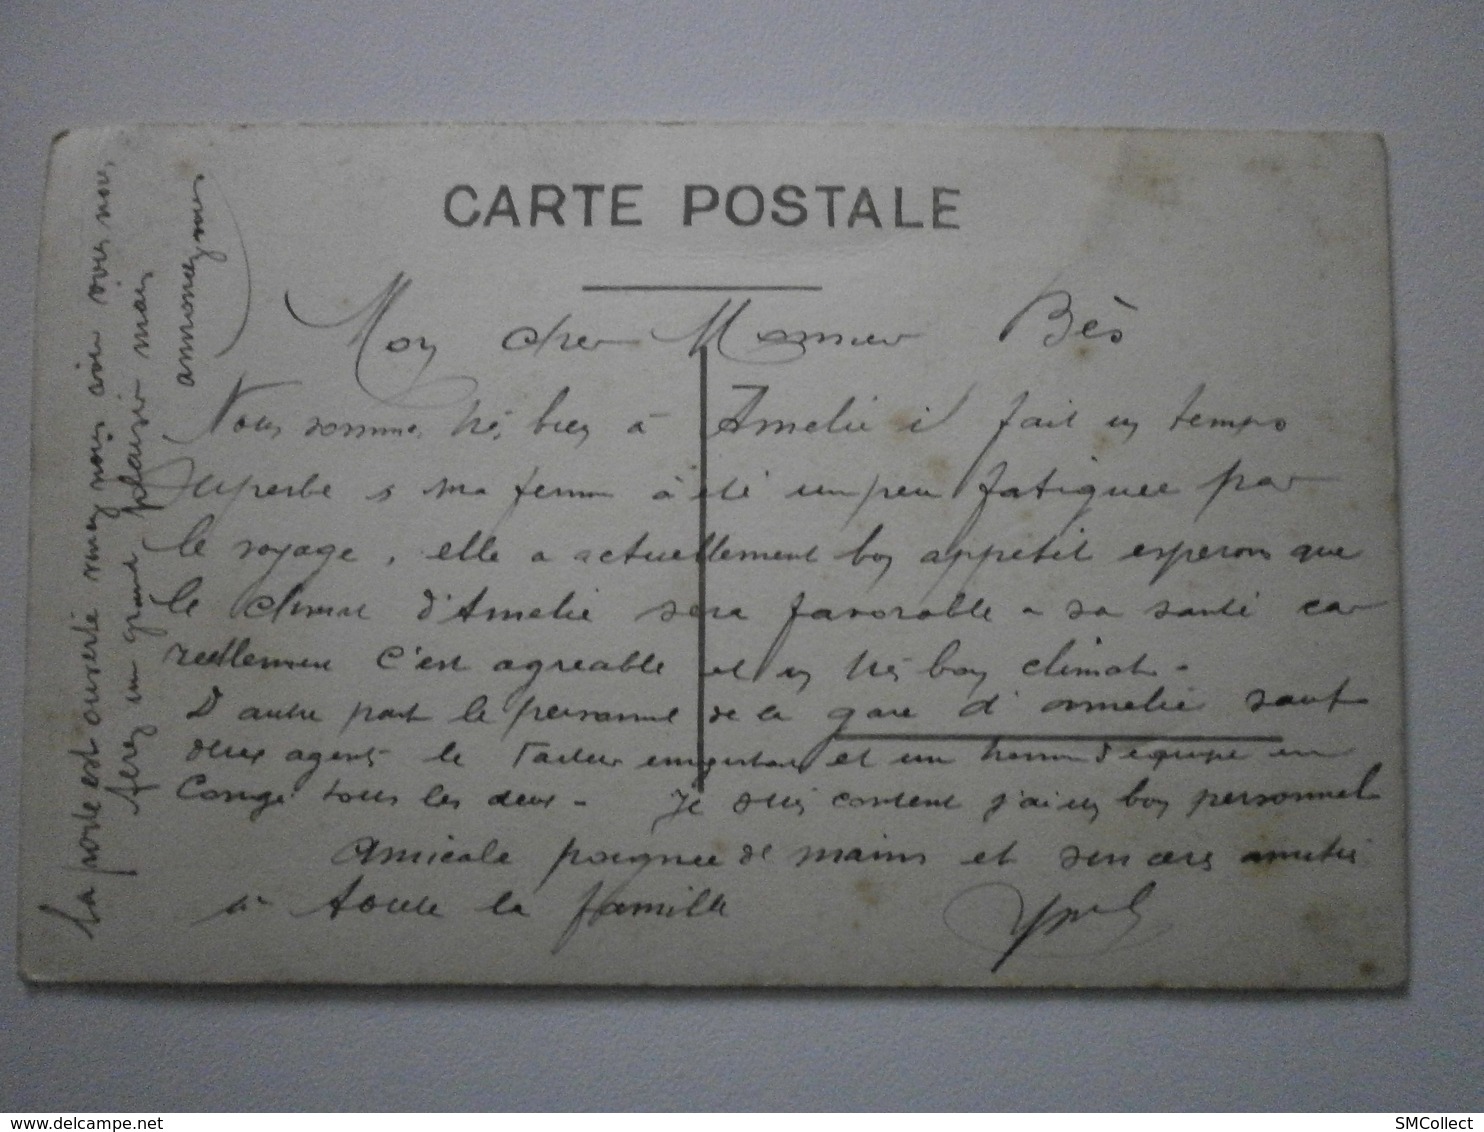 CARTE POSTALE
Moy cher Monsieur Bès
Nous sommes très bien à Amelie il fait un temps
superbe ma femme à été un peu fatiguée par
le voyage, elle a actuellement boy appetit esperons que
le climat d'Amelie sera favorable a sa santé car
reellement c'est agreable et un très boy climat.
D'autre part le personnel de la gare d'amelie sont
deux agents le facteur et un homme d'équipe en
Congé tous les deux. Je suis content j'ai un boy personnel
Amicale poignee de mains et amitiés
à toute la famille
La porte est ouverte venez nous voir vous nous
ferez un grand plaisir mais
annoncez nous
delcampe.net
SMCollect